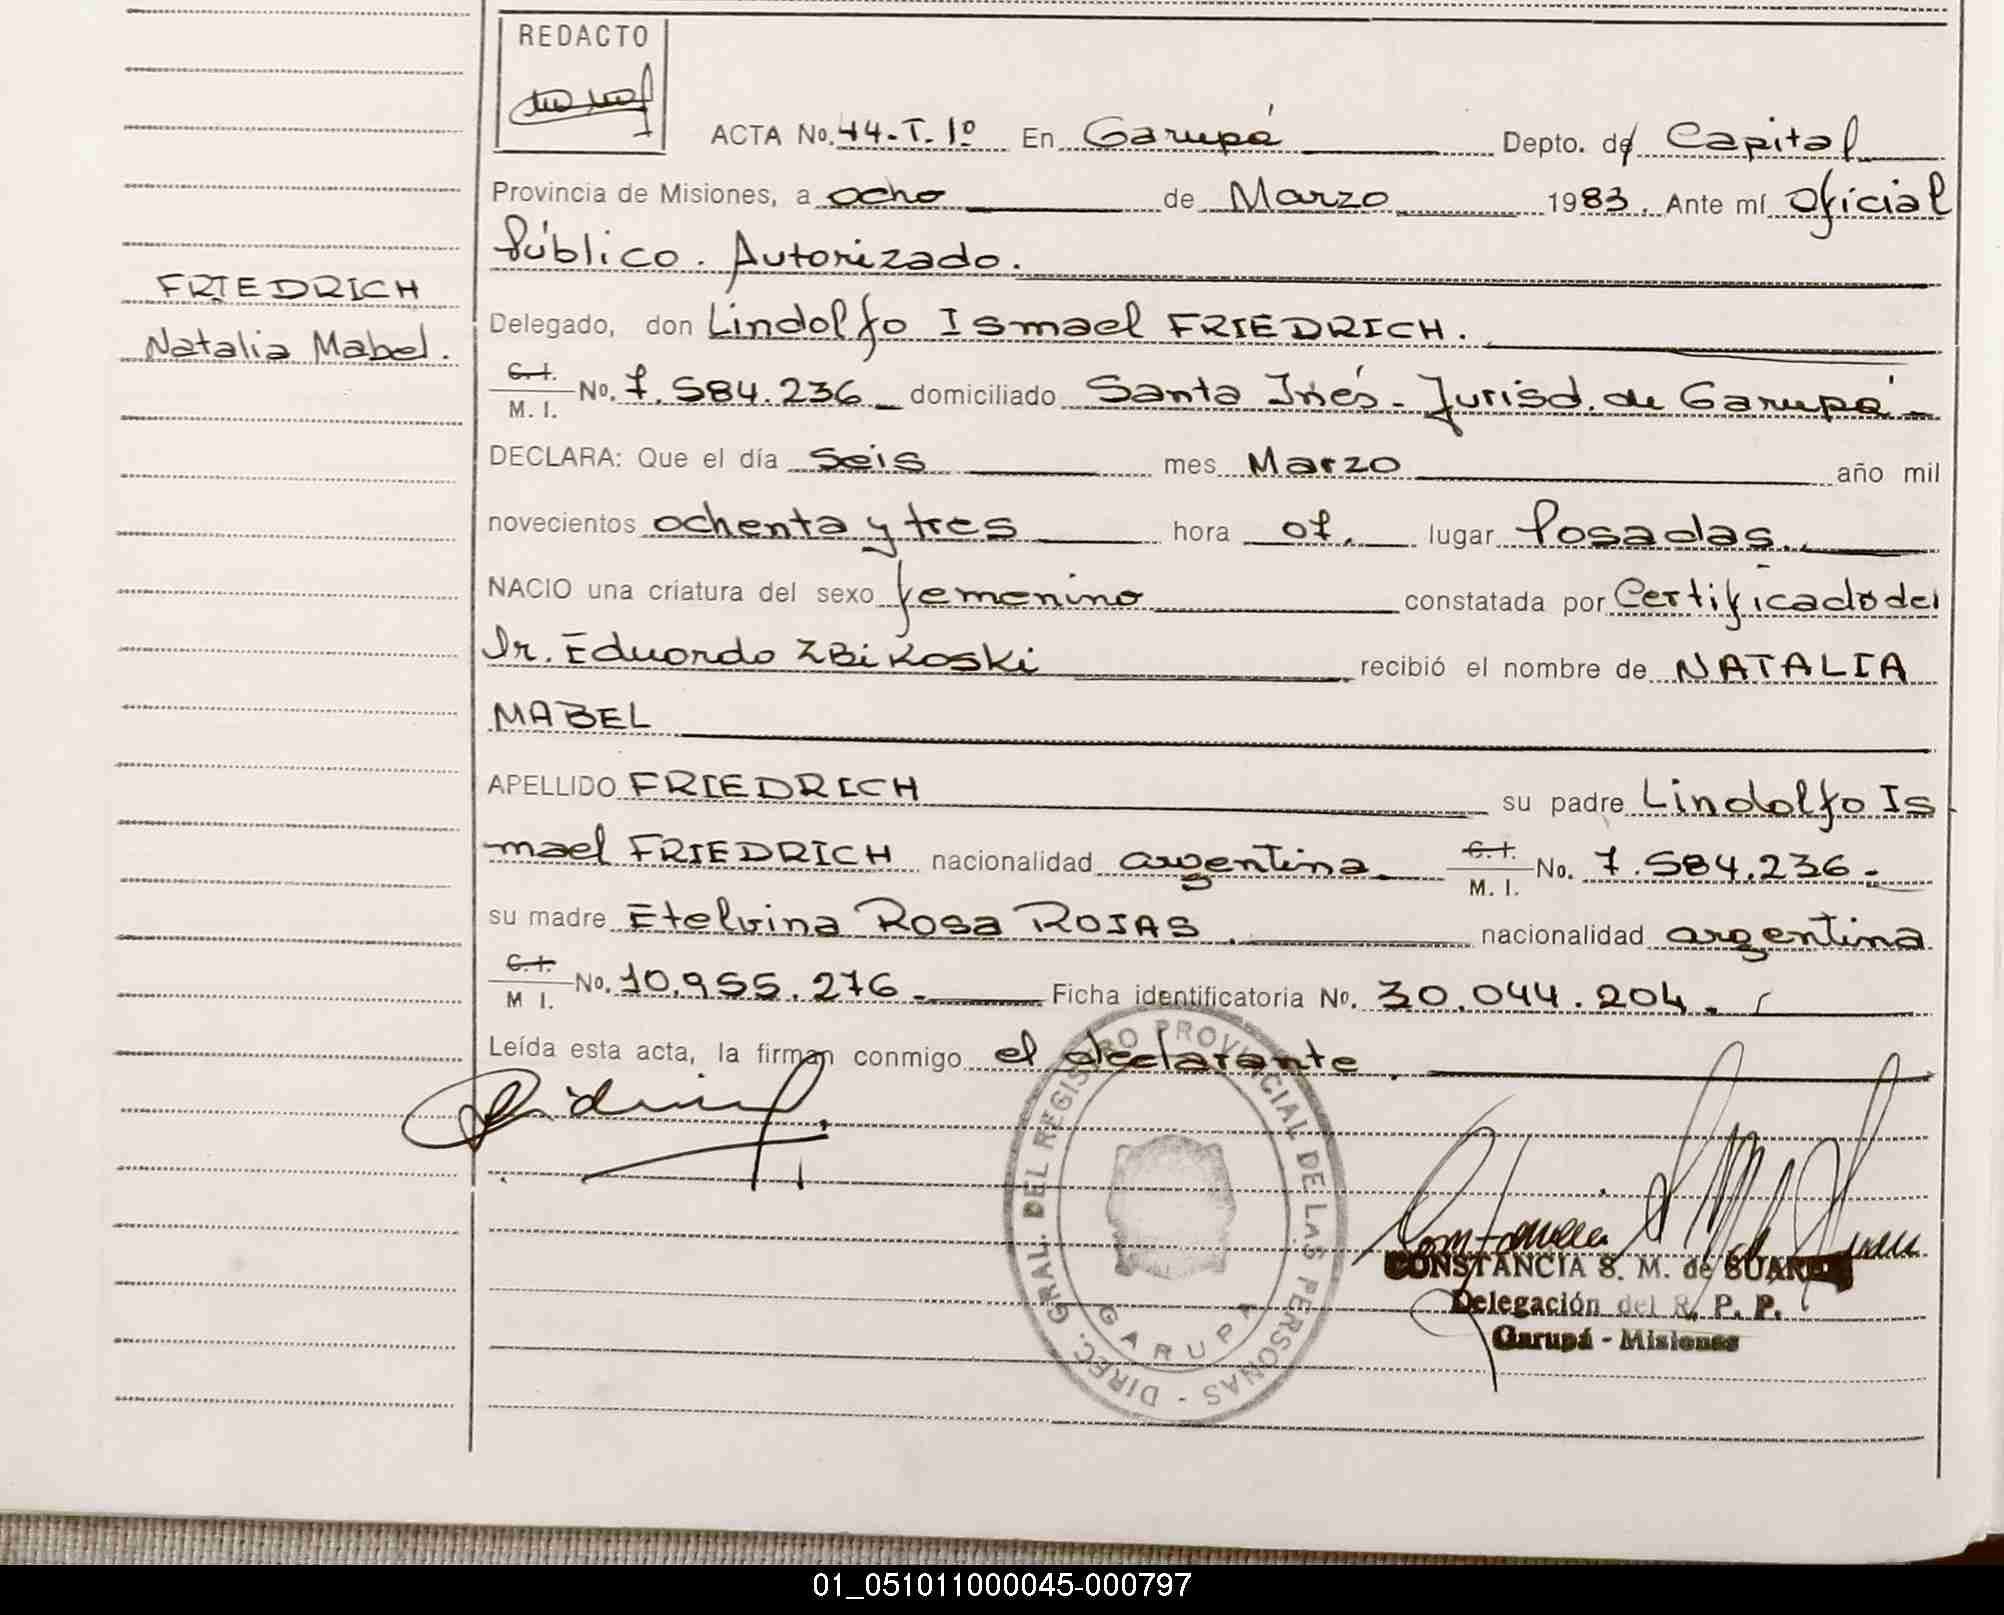 REDACTO
ACTA No. 44-T. 1º En Garupá Depto. de Capital
Provincia de Misiones, a ocho de Marzo 1983. Ante mí Oficial
Público. Autorizado.
FRIEDRICH
Natalia Mabel.
Delegado, don Lindolfo Ismael FRIEDRICH.
C. I.
M. I. No. 7.584.236 domiciliado Santa Inés - Jurisd. de Garupá -
DECLARA: Que el día seis mes Marzo año mil
novecientos ochenta y tres hora 07. lugar Posadas.
NACIO una criatura del sexo femenino constatada por Certificado del
Dr. Eduardo ZBiKoski recibió el nombre de NATALIA
MABEL
APELLIDO FRIEDRICH su padre Lindolfo Is
mael FRIEDRICH nacionalidad argentina. C. I.
M. I. No. 7.584.236 -
su madre Etelvina Rosa ROJAS. nacionalidad argentina
C. I.
M I. No. 10.955.276 - Ficha identificatoria No. 30.044.204.
Leída esta acta, la firman conmigo el declarante.
DIREC. GRAL. DEL REGISTRO PROVINCIAL DE LAS PERSONAS -
GARUPA
CONSTANCIA S. M. de SUAREZ
Delegación del R. P. P.
Garupá - Misiones
01_051011000045-000797